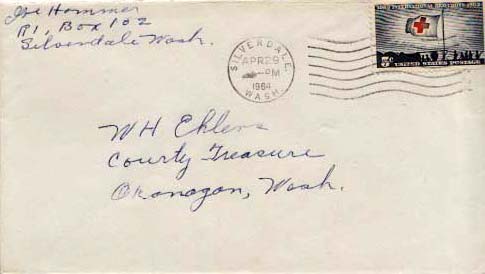 Joe Hammer
Rt, Box 102
Silverdale Wash.
SILVERDALE,
APR 29
PM
1964
WASH.
1863 INTERNATIONAL RED CROSS 1963
5c UNITED STATES POSTAGE
WH Ehlers
County Treasure
Okanogan, Wash.